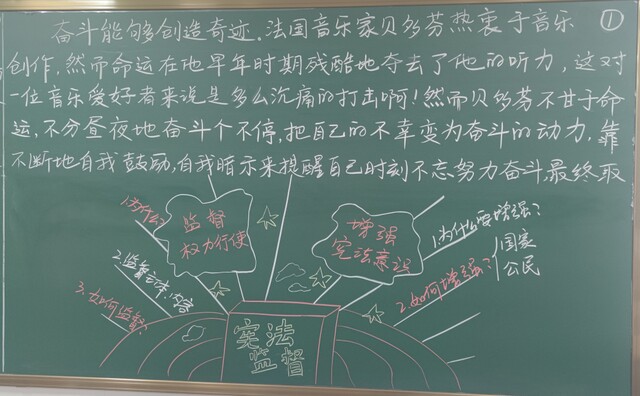 奋斗能够创造奇迹。法国音乐家贝多芬热衷于音乐
①
创作,然而命运在他早年时期残酷地夺去了他的听力,这对
一位音乐爱好者来说是多么沉痛的打击啊!然而贝多芬不甘于命
运,不分昼夜地奋斗个不停,把自己的不幸变为奋斗的动力,靠
不断地自我鼓励,自我暗示来提醒自己时刻不忘努力奋斗,最终取
1.为什么?
监督
权力行使
2.监督主体、内容
3.如何监督?
增强
宪法意识
1.为什么要增强?
2.如何增强?
国家
公民
宪法
监督